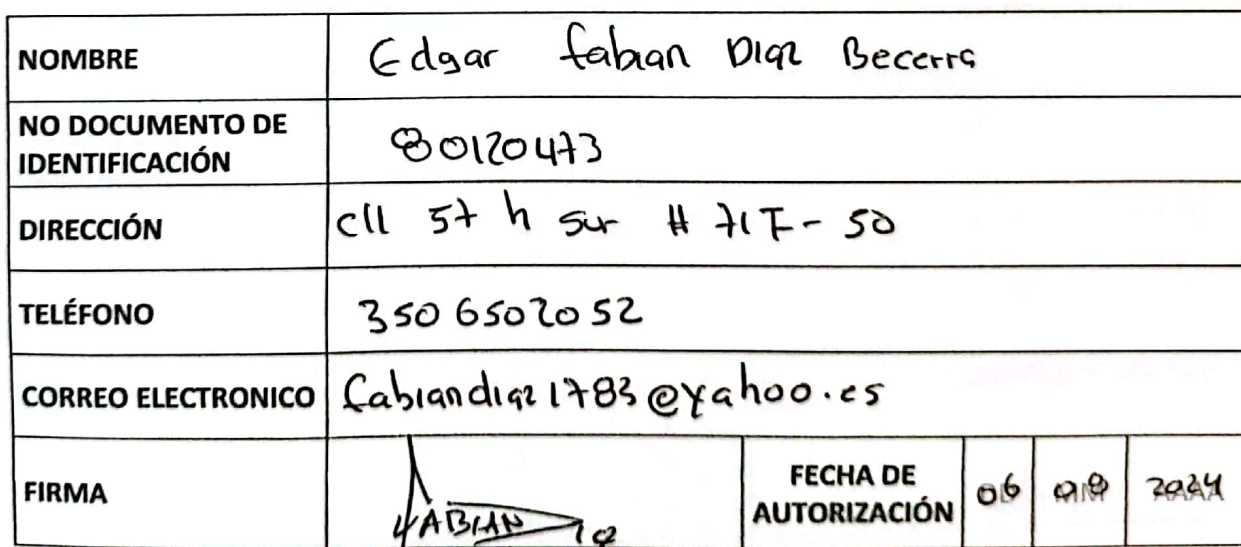 NOMBRE Edgar fabian Diaz Becerra
NO DOCUMENTO DE
IDENTIFICACIÓN 80120473
DIRECCIÓN cll 57 h sur # 71F - 50
TELÉFONO 350 6502052
CORREO ELECTRONICO fabiandiaz1783@yahoo.es
FIRMA FABIAN
FECHA DE
AUTORIZACIÓN 06 08 2024